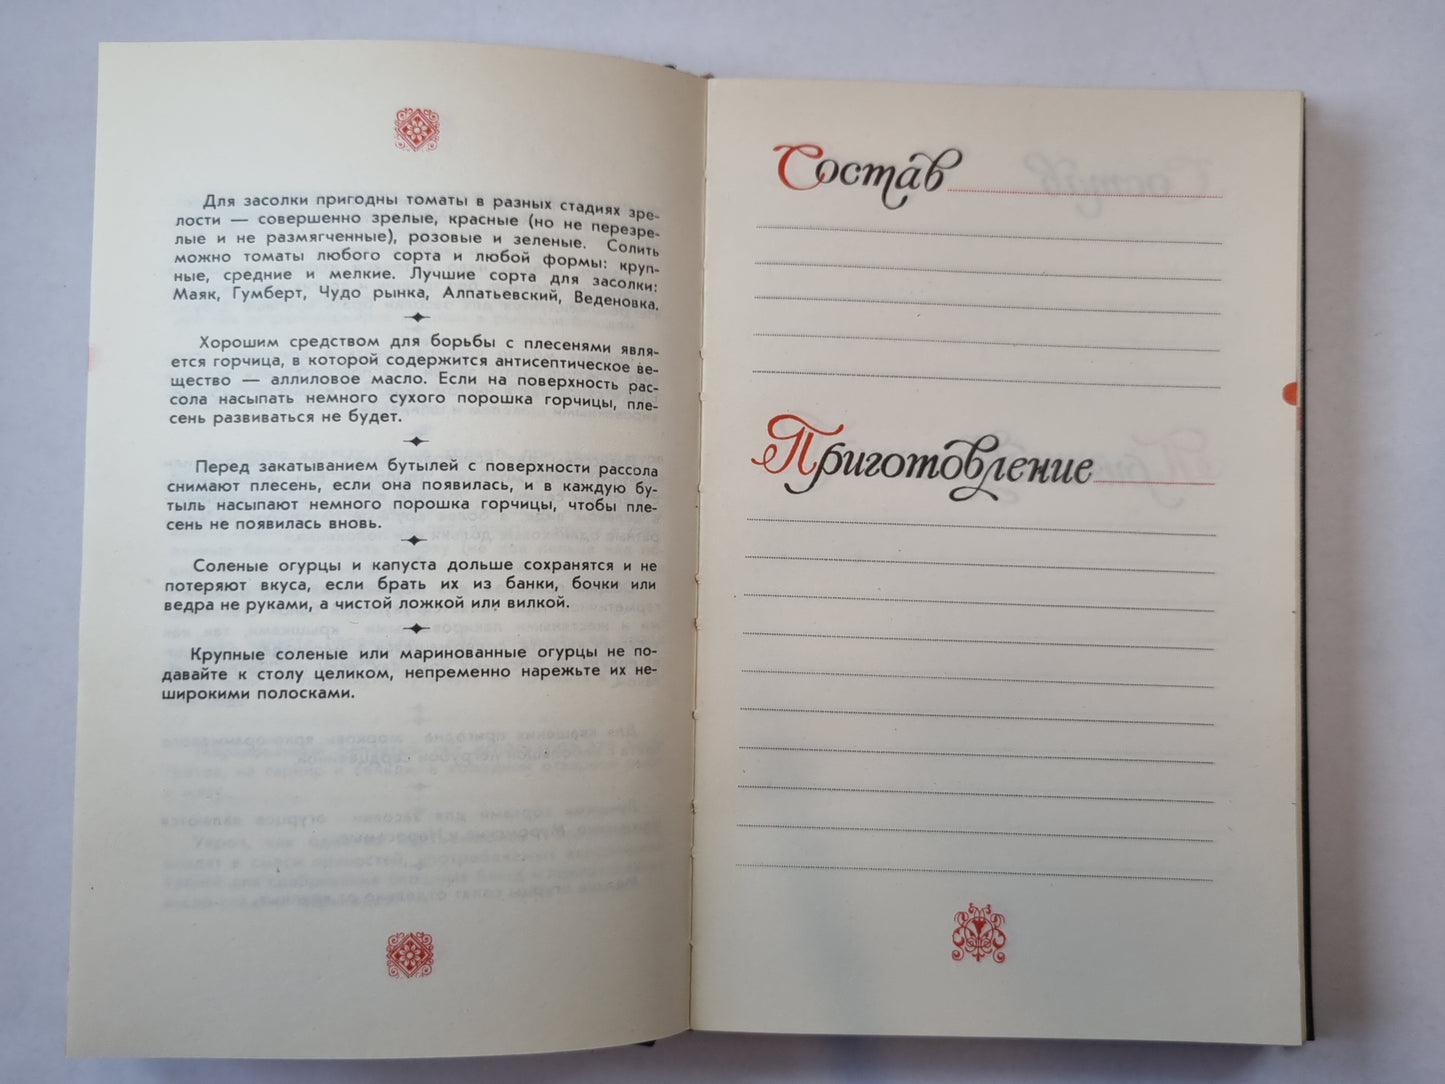 Для засолки пригодны томаты в разных стадиях зре-
лости — совершенно зрелые, красные (но не перезре-
лые и не размягченные), розовые и зеленые. Солить
можно томаты любого сорта и любой формы: круп-
ные, средние и мелкие. Лучшие сорта для засолки:
Маяк, Гумберт, Чудо рынка, Алпатьевский, Веденовка.
Хорошим средством для борьбы с плесенями явля-
ется горчица, в которой содержится антисептическое ве-
щество — аллиловое масло. Если на поверхность рас-
сола насыпать немного сухого порошка горчицы, пле-
сень развиваться не будет.
Перед закатыванием бутылей с поверхности рассола
снимают плесень, если она появилась, и в каждую бу-
тыль насыпают немного порошка горчицы, чтобы пле-
сень не появилась вновь.
Соленые огурцы и капуста дольше сохранятся и не
потеряют вкуса, если брать их из банки, бочки или
ведра не руками, а чистой ложкой или вилкой.
Крупные соленые или маринованные огурцы не по-
давайте к столу целиком, непременно нарежьте их не-
широкими полосками.
Состав
Приготовление